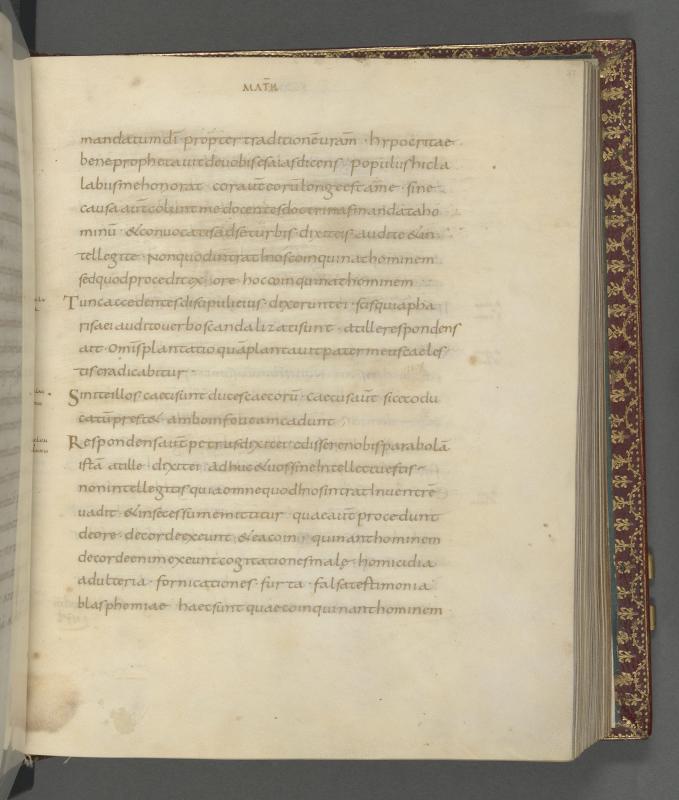 MATH
mandatum dī propter traditionē urām · hypocritae
bene prophetavit de vobis esaias dicens · populus hic la
labiis me honorat · cor aut̄ eorū longe est a me · sine
causa aut̄ colunt me docentes doctrinas mandata ho
minū · & convocatis ad se turbis dixit eis · audite & in
tellegite · Non quod intrat In os coinquinat hominem
sed quod procedit ex ore · hoc coinquinat hominem
Tunc accedentes discipuli eius · dixerunt ei · scis quia pha
risaei audito verbo scandalizati sunt · at ille respondens
ait · Omīs plantatio quā n̄ plantavit pater meus caeles
tis eradicabitur ·
Sinite illos · caeci sunt duces caecorū · caecus aut̄ si ceco du
catū prest& · ambo in foveam cadunt
Respondens aut̄ petrus dixit ei · edissere nobis parabolā
istā · at ille dixit ei · adhuc & vos sine Intellectu estis ·
non intellegitis quia omne quod In os intrat In ventrē
vadit · & in secessum emittitur · quae aut̄ procedunt
de ore · de corde exeunt · & ea coinquinant hominem
de corde enim exeunt cogitationes malę · homicidia
adulteria · fornicationes · furta · falsa testimonia
blasphemiae · haec sunt quae coinquinant hominem